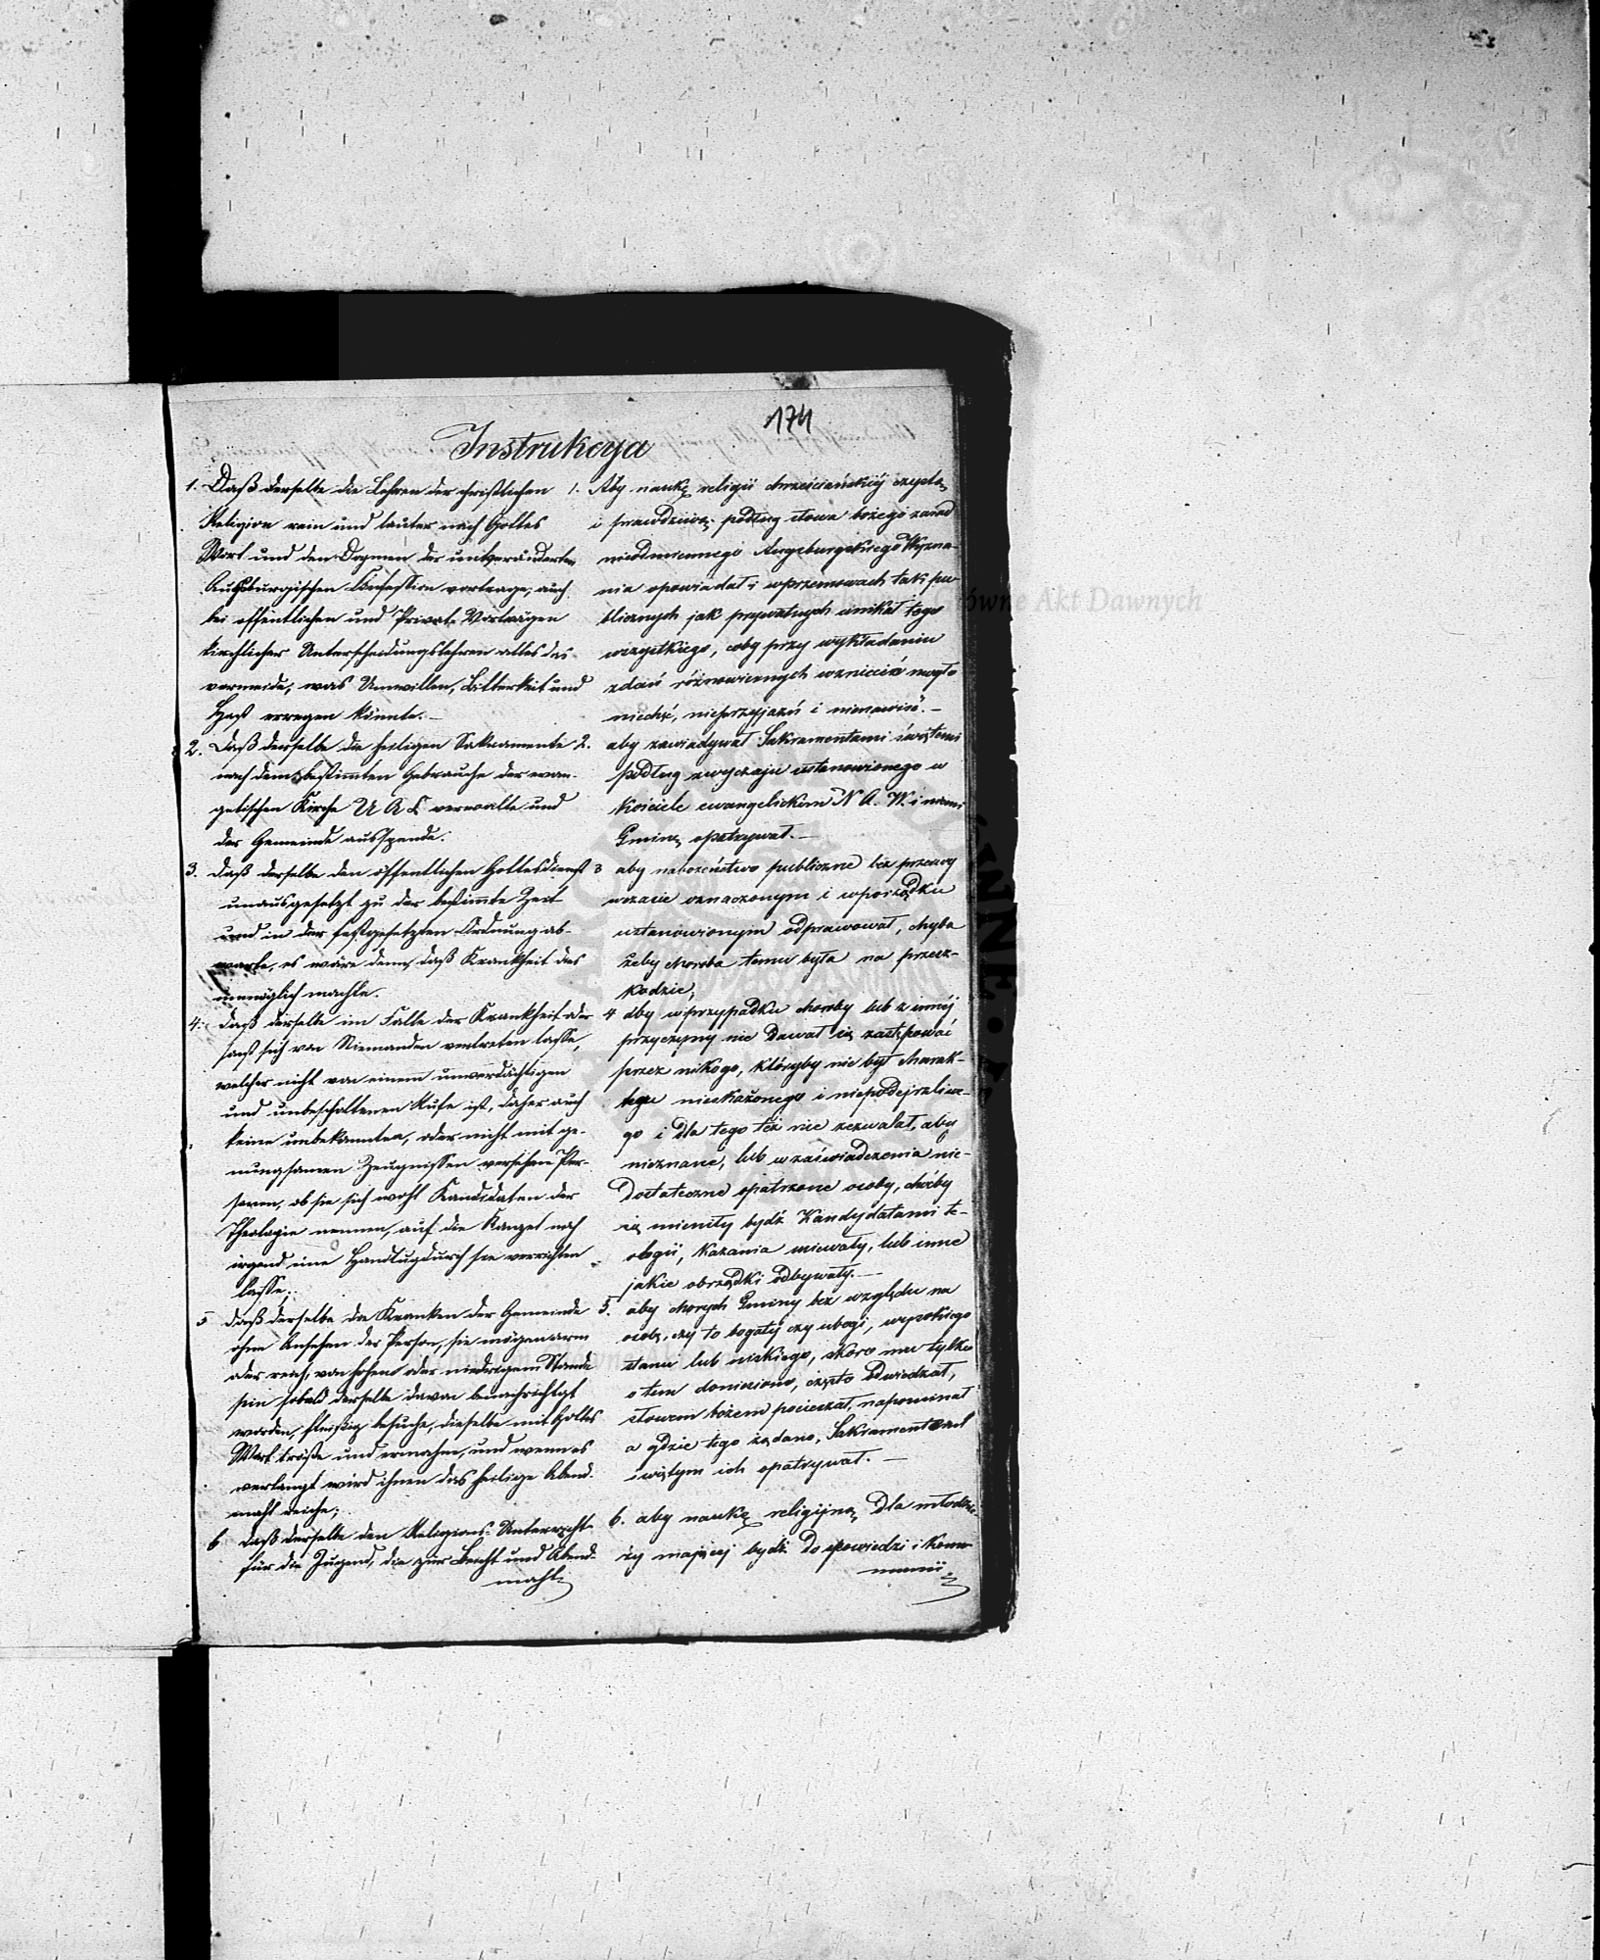 174
Instrukcya
1. Daß derselbe die Lehren der christlichen
Religion rein und lauter nach Gottes
Wort und den Dogmen der unveränderten
Augsburgischen Confession vortrage, auch
bei öffentlichen und Privat-Vorträgen
kirchlicher Unterscheidungslehren alles das
vermeide, was Unwillen, Bitterkeit und
Haß erregen könnte.
2. Daß derselbe die heiligen Sakramente
nach dem bestimmten Gebrauche der evan-
gelischen Kirche U A C verwalte und
der Gemeinde ausspende.
3. daß derselbe den öffentlichen Gottesdienst
unausgesetzt zu der bestimmte Zeit
und in der festgesetzten Ordnung ab-
warte, es wäre denn, daß Krankheit dies
unmöglich machte.
4. daß derselbe im Falle der Krankheit oder
sonst sich von Niemanden vertreten lasse,
welcher nicht von einem unverdächtigen
und unbescholtenen Rufe ist, daher auch
keine unbekannten, oder nicht mit ge-
nungsamen Zeugnissen versehene Per-
sonen, ob sie sich wohl Kandidaten der
Theologie nennen, auf die Kanzel noch
irgend eine Handlug durch sie verrichten
lasse;
5 daß derselbe die Kranken der Gemeinde
ohne Ansehen der Person, sie mögen arm
oder reich, von hohem oder niedrigem Stande
sein sobald derselbe davon benachrichtigt
worden, fleißig besuche, dieselbe mit Gottes
Wort tröste und ermahne, und wenn es
verlangt wird ihnen das heilige Abend-
mahl reiche;
6 daß derselbe den Religions-Unterricht
für die Jugend, die zur Beicht und Abend-
mahl
1. Aby naukę religii chrześciańskiéj czystą
i prawdziwą podług słowa bożego i zasad
nieodmiennego Augsburgskiego Wyzna-
nia opowiadał i w przemowach tak pu-
blicznych jak prywatnych unikał tego
wszystkiego, coby przy wykładaniu
zdań różnowiernych wzniecić mogło
niechęć, nieprzyjaźń i nienawiść.
2. aby zawiadywał Sakramentami świętemi
podług zwyczaju ustanowionego w
kościele ewangelickim N A. W. i niemi
Gminę opatrywał.
3 aby nabożeństwo publiczne bez przerwy
w czasie oznaczonym i w porządku
ustanowionym odprawował, chyba
żeby choroba temu była na przesz-
kodzie;
4 aby w przypadku choroby lub z innéj
przyczyny nie dawał się zastępować
przez nikogo, któryby nie był charak-
teru nieskażonego i niepodejrzliwe-
go i dla tego też nie zezwalał, aby
nieznane, lub w zaświadczenia nie-
dostatecznie opatrzone osoby, choćby
się mieniły bydź Kandydatami te-
ologii, kazania miewały, lub inne
jakie obrządki odbywały.
5. aby chorych Gminy bez względu na
osobę, czy to bogaty czy ubogi, wysokiego
stanu lub niskiego, skoro mu tylko
o tem doniesiono, często odwiedzał,
słowem bożem pocieszał, napominał
a gdzie tego żądano, Sakramentem
świętym ich opatrywał.
6. aby naukę religijną dla młodzie-
ży mającej bydź do spowiedzi i komu-
munii
Archiwum Główne Akt Dawnych